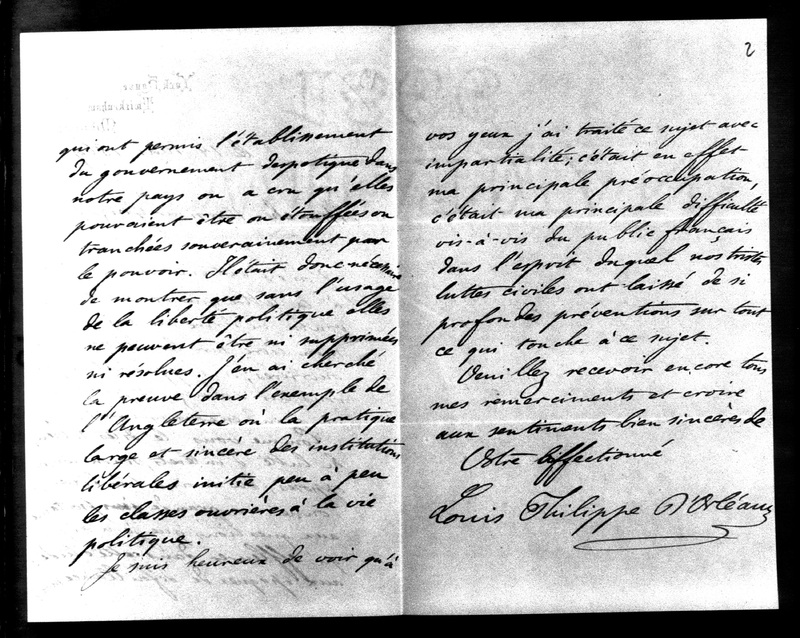 qui ont permis l'établissement
du gouvernement despotique dans
notre pays on a cru qu'elles
pouvaient être ou étouffées ou
tranchées souverainement par
le pouvoir. Il était donc nécessaire
de montrer que sans l'usage
de la liberté politique elles
ne peuvent être ni supprimées
ni résolues. J'en ai cherché
la preuve dans l'exemple de
l'Angleterre où la pratique
large et sincère des institutions
libérales initie peu à peu
les classes ouvrières à la vie
politique.
Je suis heureux de voir qu'à
2
vos yeux j'ai traité ce sujet avec
impartialité; c'était en effet
ma principale préoccupation,
c'était ma principale difficulté
vis-à-vis du public français
dans l'esprit duquel nos tristes
luttes civiles ont laissé de si
profondes préventions sur tout
ce qui touche à ce sujet.
Veuillez recevoir encore tous
mes remerciments et croire
aux sentiments bien sincères de
Votre affectionné
Louis Philippe D'Orléans